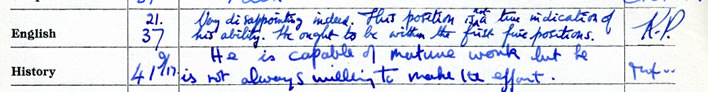 English 21. 37 Very disappointing indeed. This position is not a true indication of
his ability. He ought to be within the first five positions. K.P.
History 41 He is capable of mature work but he
is not always willing to make the effort.